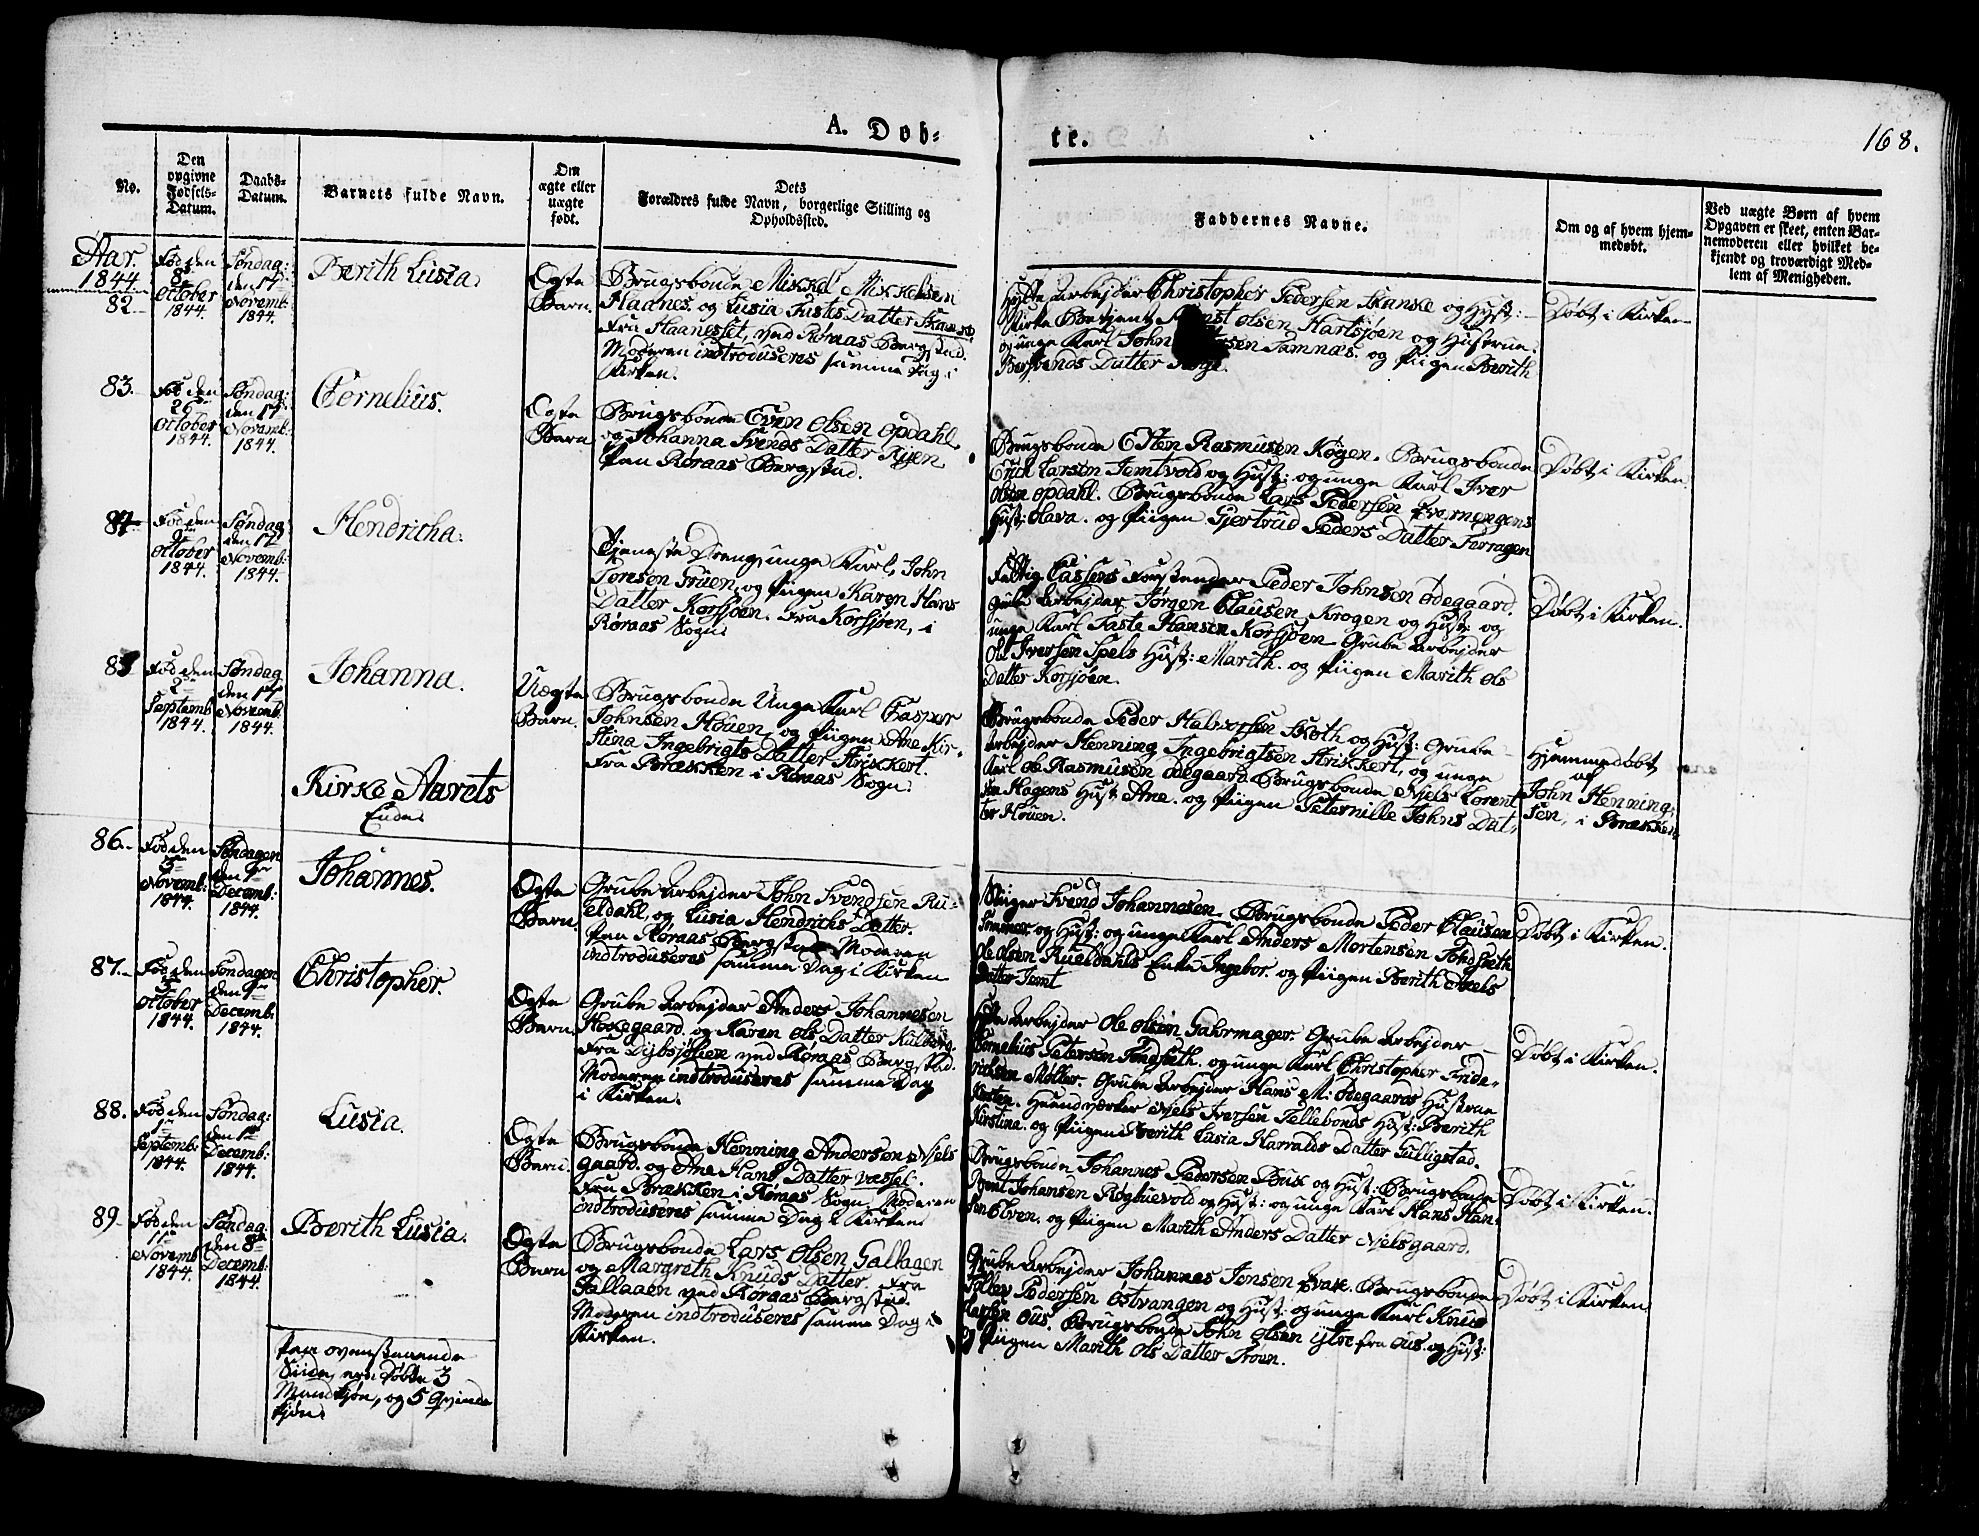 A. Døb-
te.
168.
No.
Den opgivne Fødsels-Datum.
Daabs-Datum.
Barnets fulde Navn.
Om ægte eller uægte født.
Dets Forældres fulde Navn, borgerlige Stilling og Opholdssted.
Faddernes Navne.
Om og af hvem hjem-medøbt.
Ved uægte Børn af hvem Opgaven er skeet, enten Bar-nemoderen eller hvilket be-kjendt og troværdigt Med-lem af Menigheden.
Aar.
1844.
82
Fød den
8de
October
1844.
Søndag:
den 17
Novemb:
1844.
Berith Lusia.
Egte
Barn.
Brugsbonde Mikkel Mikkelsen
Haanes. og Lusia Fastes Datter Skanske
fra Haaneset, ved Røraas Bergstad.
Moderen indtroduseres samme Dag i
Kirken.
Hytte Arbejder Christopher Pedersen Skanske og Hust:
Kirke Betjent Olsen Hartsjøen og Hustrue.
og unge Karl John Tamnæs. og Piigen Berith
Datter
Døbt i Kirken
83.
Fød den
26
October
1844.
Søndag:
den 17
Novemb:
1844.
Cornelius.
Egte
Barn
Brugsbonde Even Olsen Opdahl,
og Johanna Svends Datter Ryen
paa Røraas Bergstad.
Brugsbonde Esten Rasmusen Køgen. Brugsbonde
Erich Larsen Jemtvold og Hust: og unge Karl Iver
Olsen Opdahl. Brugsbonde Lars Pedersen Kvernengens
Hust: Olava. og Piigen Gjertrud Peders Datter Torragen
Døbt i Kirken.
84
Fød den
October
1844.
Søndag
den 17
Novemb:
1844.
Hendricha.
Tjeneste Dreng, unge Karl, John
Toresen Fruen, og Piigen Karen Hans
Datter Korssjøen. fra Korsjøen, i
Røraas Sogn.
Fattig Cassens Forstender Peder Johnsen Ødegaard.
Grube Arbejder Jørgen Clausen Krogen og Hust: og
unge Karl Faste Hansen Korsjøen Grube Arbejder
Ole Iversen Spels Hust: Marith. og Piigen Marith Ols
Datter Korsjøen.
Døbt i Kirken.
85
Fød den
2
Septemb
1844.
Søndag
den 17
Novemb:
1844.
Johanna.
Uægte
Barn.
Brugsbonde Unge Karl Casper
Johnsen Høuen, og Piigen Ane Kir-
stina Ingebrigts Datter Strikkert.
fra Brækken i Røraas Sogn.
Brugsbonde Peder Halvorsen Skoth og Hust: Grube
Arbejder Henning Ingebrigtsen Strikkert, og unge
Karl Ole Rasmusen Ødegaard. Brugsbonde Niels Lorent
sen Hagens Hust: Ane. og Piigen Peternille Johns Dat,
ter Høuen.
Hjemmedøbt
af
John Henning-
sen, i Brækken
Kirke Aarets
Ende.
86.
Fød den
5
Novemb:
1844.
Søndagen
den 1
Decemb:
1844.
Johannes.
Egte
Barn.
Grube Arbejder John Svendsen Ru-
eldahl, og Lusia Hendrichs Datter.
paa Røraas Bergstad. Moderen
indtroduseres samme Dag i Kirken
Stiger Svend Johannesen. Brugsbonde Peder Clausen
og Hust: og unge Karl Anders Mortensen Tohdseth
Ole Olsen Rueldahls Enke Ingebor. og Piigen Berith Axels
Datter Jemt
Døbt i Kirken.
87.
Fød den
October
1844.
Søndagen
den 1
Decemb:
1844.
Christopher.
Egte
Barn.
Grube Arbejder Anders Johannesen
Hokegaard. og Karen Ols Datter Kulborg.
fra Dybsjøhien ved Røraas Bergstad.
Moderen indtroduseres samme Dag
i Kirken.
Hytte Arbejder Ole Olsen Gahrmager. Grube Arbejder
Cornelius Petersen Tøndseth. og unge Karl Christopher Fride-
richsen Møller. Grube Arbejder Hans M: Ødegaards Hustrue
Kirsten. Haandværker Niels Iversen Tellebonds Hust: Berith
Kirstina. og Piigen Berith Lusia Harralds Datter Gulligstad.
Døbt i Kirken.
88.
Fød den
1
Septemb:
1844.
Søndag:
den 1
Decemb:
1844.
Lusia.
Egte
Barn.
Brugsbonde Henning Andersen Niels
gaard. og Ane Hans Datter Vassel.
fra Brækken i Røraas Sogn. Moderen
indtroduseres samme Dag i Kirken
Brugsbonde Johannes Pedersen Bux og Hust: Brugsbonde
Bent Johansen Røgbuevold og Hust: og unge Karl Hans Han-
sen Elven. og Piigen Marith Anders Datter Nielsgaard.
Døbt i Kirken.
89
Fød den
11
Novemb
1844.
Søndag:
den 8
Decemb:
1844.
Berith Lusia.
Egte
Barn
Brugsbonde Lars Olsen Gallaaen
og Margreth Knuds Datter fra
Gallaaen ved Røraas Bergstad.
Moderen indtroduseres samme Dag i
Kirken.
Grube Arbejder Johannes Jensen Brak. Brugsbonde
Tolles Pedersen Østvangen og Hust: og unge Karl Knud
Larsen Ous. Brugsbonde John Olsen Ytre fra Ous. og Hust:
og Piigen Marith Ols Datter Trøen.
Døbt i Kirken.
Paa ovenstaaende
Siide, ere Døbte 3
Mandkjøn, og 5 Qvinde
kjøn.